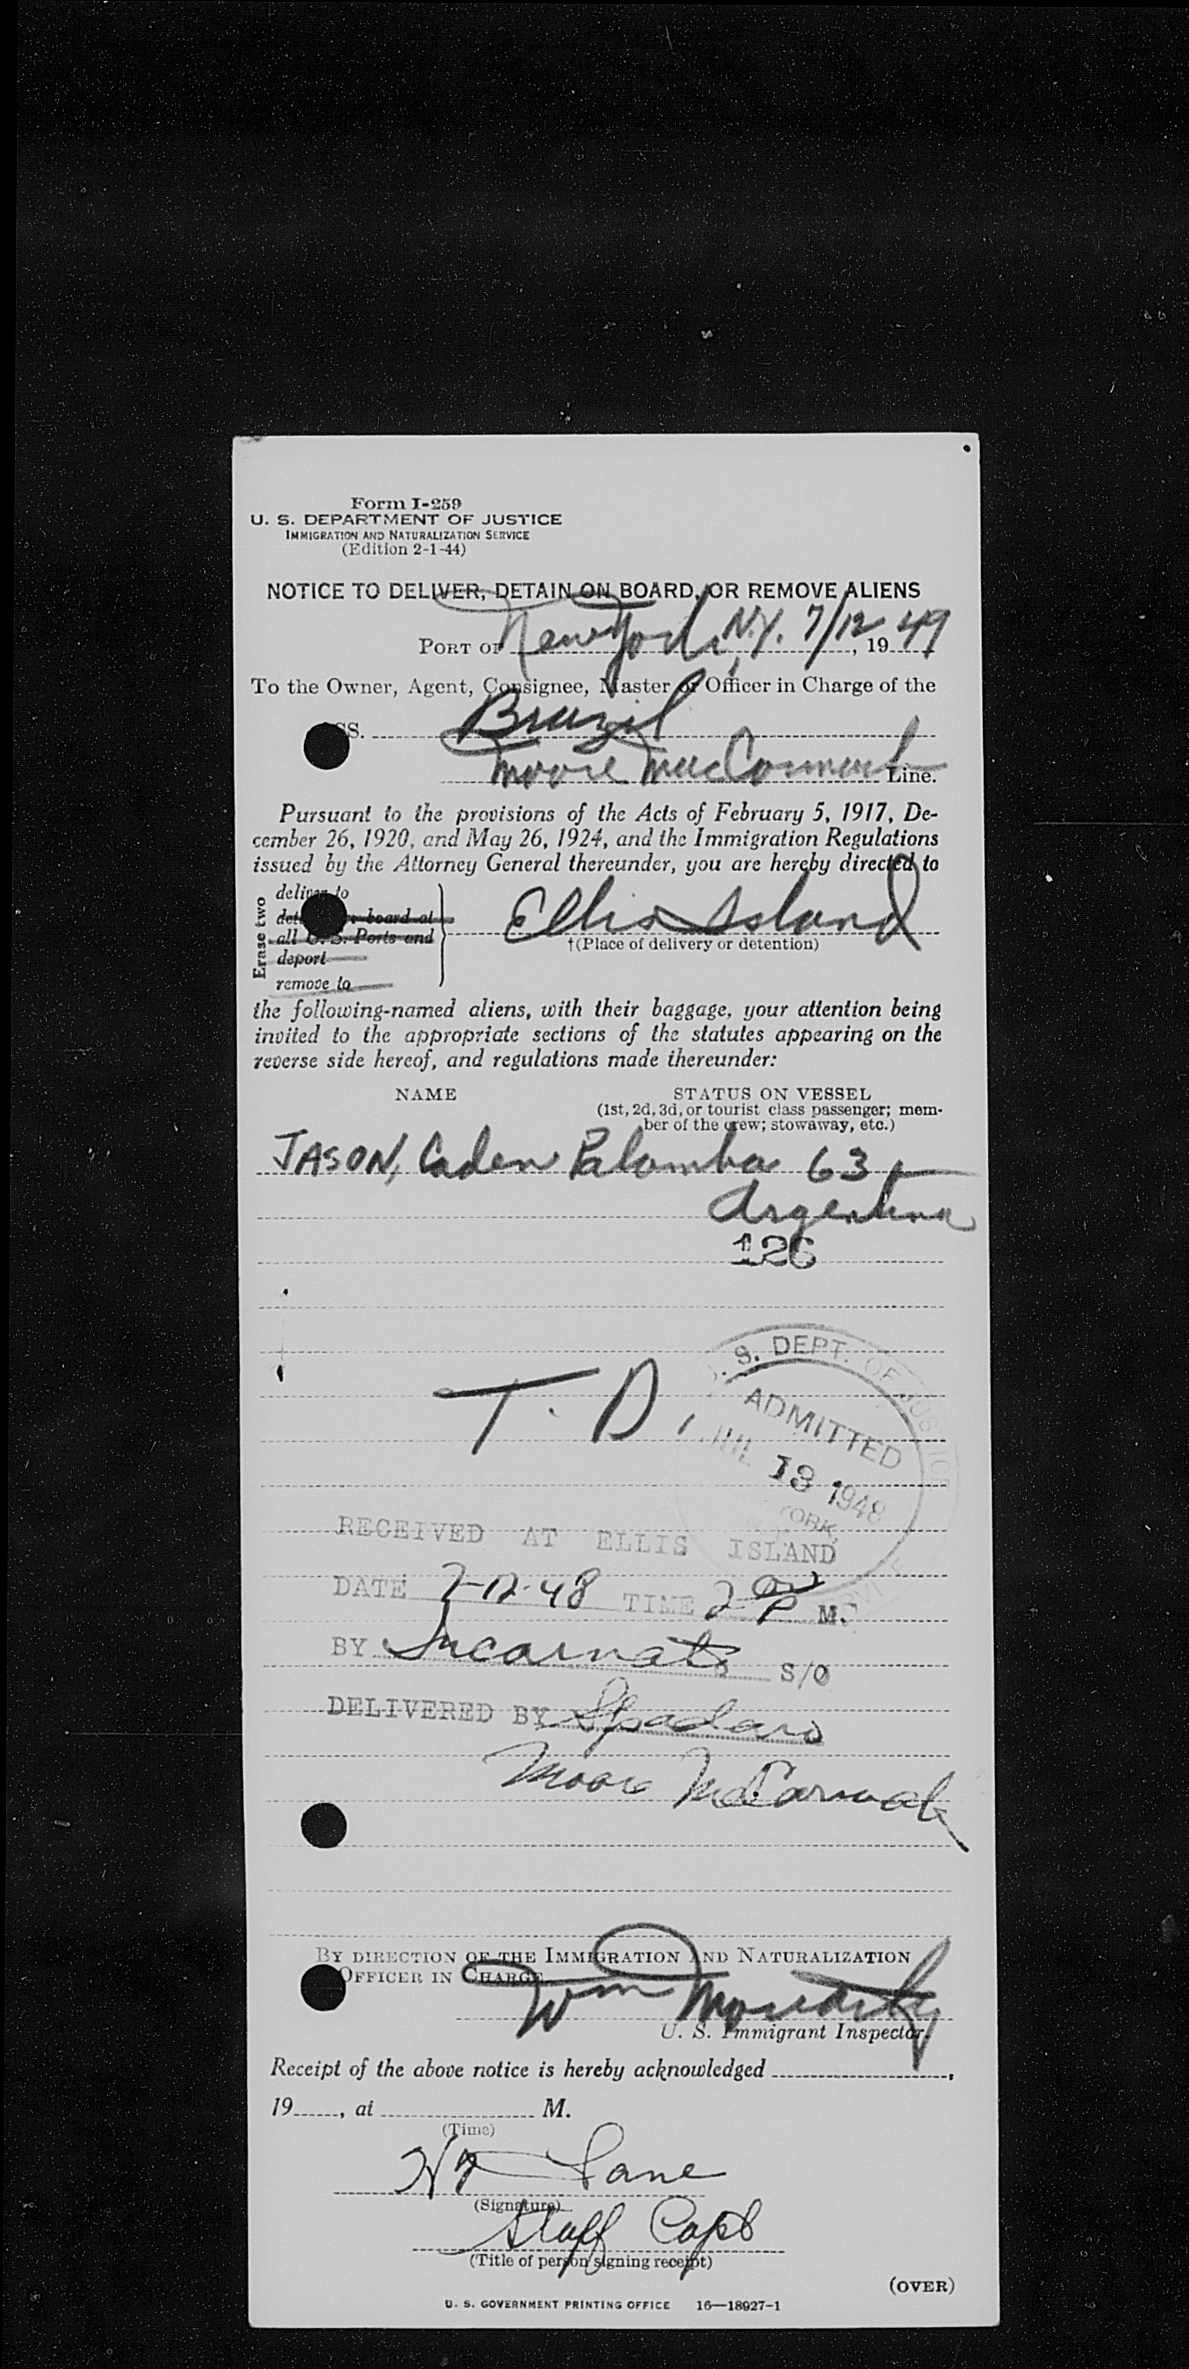 Form I-259
U. S. DEPARTMENT OF JUSTICE
IMMIGRATION AND NATURALIZATION SERVICE
(Edition 2-1-44)
NOTICE TO DELIVER, DETAIN ON BOARD, OR REMOVE ALIENS
PORT OF New York, N.Y. 7/12, 1949
To the Owner, Agent, Consignee, Master or Officer in Charge of the
SS. Brazil
Moore MacCormack Line.
Pursuant to the provisions of the Acts of February 5, 1917, De-
cember 26, 1920, and May 26, 1924, and the Immigration Regulations
issued by the Attorney General thereunder, you are hereby directed to
Erase two
deliver to
board at
all U. S. Ports and
deport
remove to
Ellis Island
†(Place of delivery or detention)
the following-named aliens, with their baggage, your attention being
invited to the appropriate sections of the statutes appearing on the
reverse side hereof, and regulations made thereunder:
NAME STATUS ON VESSEL
(1st, 2d, 3d, or tourist class passenger; mem-
ber of the crew; stowaway, etc.)
JASON, Caden Palomba 63
Argentina
126
T. D.
S. DEPT. OF JUSTICE
ADMITTED
JUL 13 1948
YORK,
RECEIVED AT ELLIS ISLAND
DATE 7-12-48 TIME 2 P M.
BY Incarnato S/O
DELIVERED BY Spadaro
Moore McCormack
BY DIRECTION OF THE IMMIGRATION AND NATURALIZATION
OFFICER IN CHARGE
Wm Moriarty
U. S. Immigrant Inspector.
Receipt of the above notice is hereby acknowledged ,
19 , at M.
(Time)
Lane
(Signature)
Staff Capt
(Title of person signing receipt)
(OVER)
U. S. GOVERNMENT PRINTING OFFICE 16—18927-1